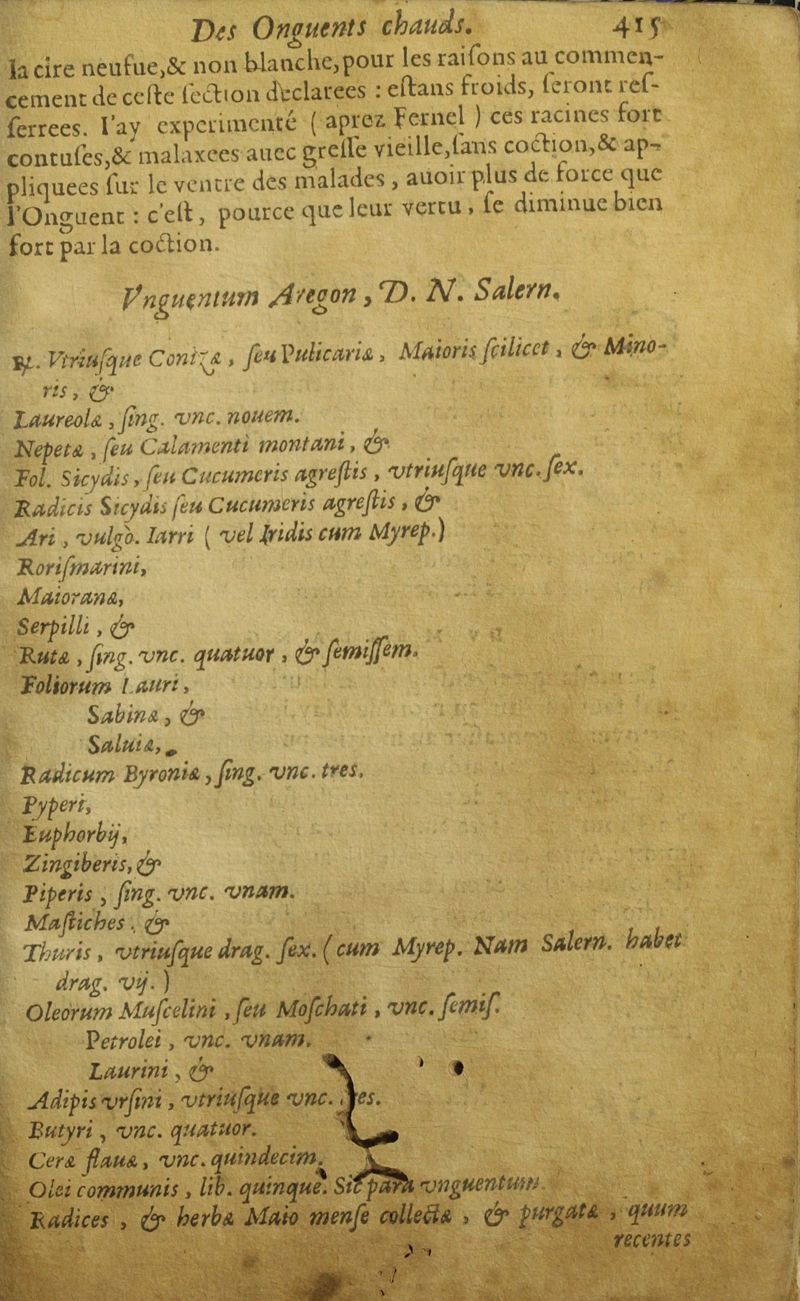 Des Onguents chauds. 415
la cire neufue,& non blanche,pour les raiſons au commen-
cement de ceſte ſection declarees : eſtans froids, ſeront reſ-
ſerrees. I'ay experimenté ( aprez Fernel ) ces racines fort
contuſes,& malaxees auec greſſe vieille,ſans coction,& ap-
pliquees ſur le ventre des malades , auoir plus de force que
l'Onguent : c'eſt , pource que leur vertu , ſe diminue bien
fort par la coction.
Vnguentum Aregon , D. N. Salern.
℞. Vtriuſque Conizæ , ſeu Pulicariæ , Maioris ſcilicet , & Mino-
ris , &
Laureolæ , ſing. vnc. nouem.
Nepetæ , ſeu Calamenti montani , &
Fol. Sicydis , ſeu Cucumeris agreſtis , vtriuſque vnc. ſex.
Radicis Sicydis ſeu Cucumeris agreſtis , &
Ari , vulgò. Iarri ( vel Iridis cum Myrep.)
Roriſmarini,
Maioranæ,
Serpilli , &
Rutæ , ſing. vnc. quatuor , & ſemiſſem.
Foliorum Lauri ,
Sabinæ , &
Saluiæ,
Radicum Byroniæ , ſing. vnc. tres.
Pyperi,
Euphorbij,
Zingiberis, &
Piperis , ſing. vnc. vnam.
Maſtiches , &
Thuris , vtriuſque drag. ſex. ( cum Myrep. Nam Salern. habet
drag. vij. )
Oleorum Muſcelini , ſeu Moſchati , vnc. ſemiſ.
Petrolei , vnc. vnam.
Laurini , &
Adipis vrſini , vtriuſque vnc. tres.
Butyri , vnc. quatuor.
Ceræ flauæ , vnc. quindecim.
Olei communis , lib. quinque. Sic para vnguentum.
Radices , & herbæ Maio menſe collectæ , & purgatæ , quum
recentes